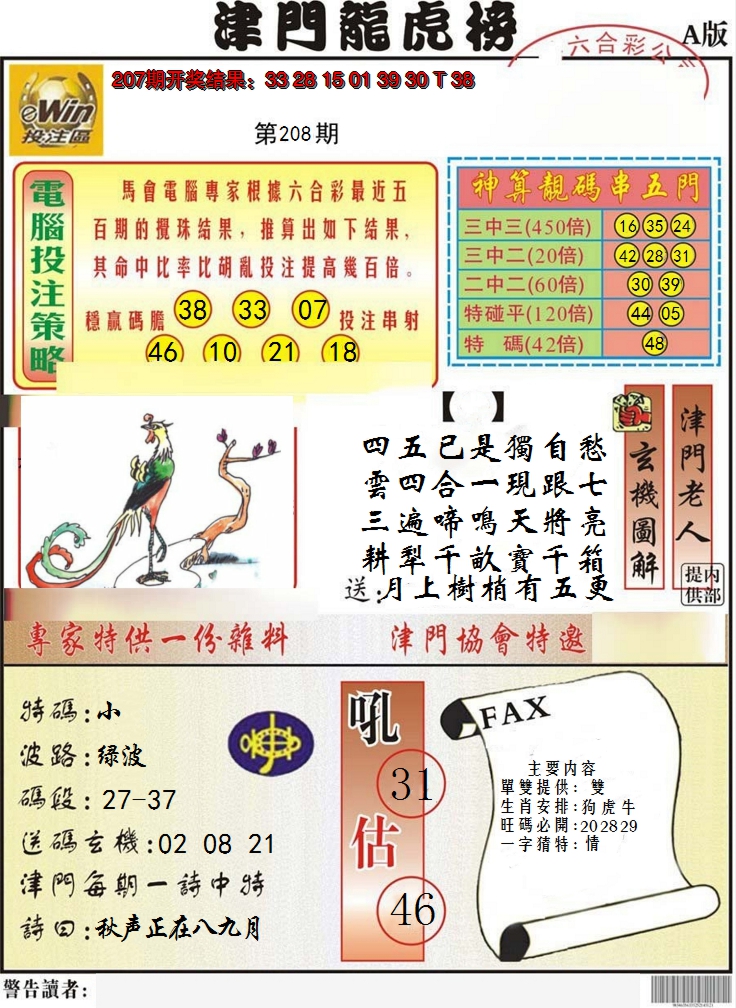 津門龍虎榜
A版
六合彩公
207期开奖结果：33 28 15 01 39 30 T 38
eWin
投注區
第208期
電腦投注策略
馬會電腦專家根據六合彩最近五
百期的攪珠结果，推算出如下结果，
其命中比率比胡亂投注提高幾百倍。
穩贏碼膽 38 33 07 投注串射
46 10 21 18
神算靚碼串五門
三中三(450倍) 16 35 24
三中二(20倍) 42 28 31
二中二(60倍) 30 39
特碰平(120倍) 44 05
特 碼(42倍) 48
【 】
四五已是獨自愁
雲四合一現跟七
三遍啼鳴天將亮
耕犁千畝寶千箱
送:月上樹梢有五更
玄機圖解
津門老人
内部提供
專家特供一份雜料
津門協會特邀
特碼:小
波路:绿波
碼段:27-37
送碼玄機:02 08 21
津門每期一詩中特
詩曰:秋声正在八九月
吼
31
估
46
FAX
主要内容
單雙提供：雙
生肖安排:狗虎牛
旺碼必開:20 28 29
一字猜特：情
警告讀者: